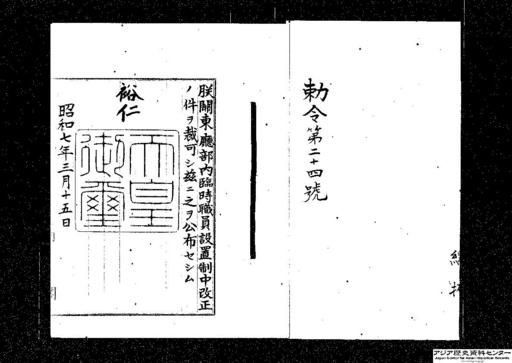 勅令第二十四號
朕關東廳部內臨時職員設置制中改正
ノ件ヲ裁可シ茲ニ之ヲ公布セシム
裕仁
天皇御璽
昭和七年三月十五日
アジア歴史資料センター
Japan Center for Asian Historical Records